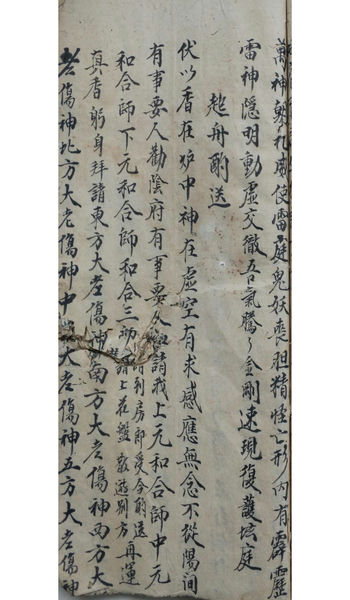 萬神朝禮威使雷庭鬼妖喪胆精怪亡形內有霹靂
雷神隱明動虛交徹吾氣騰々金剛速現復護坛庭
起舟酧送
伏以香在炉中神在虛空有求感應無念不從陽间
有事要人勸陰府有事要人請我上元和合師中元
和合師下元和合師和合三師利房郎受今酧送
請上花盤敨遊別方再運
真香躬身拜請東方大老傷神南方大老傷神西方大
老傷神北方大老傷神中方大老傷神五方大老傷神